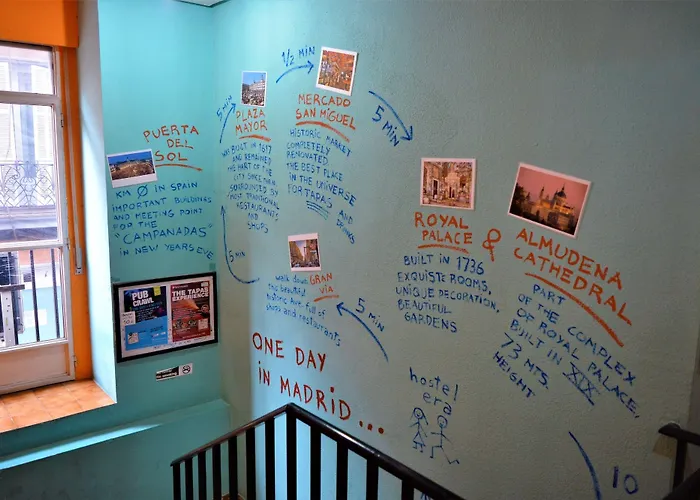 PUERTA
DEL
SOL
KM Ø IN SPAIN
IMPORTANT BUILDINGS
AND MEETING POINT
FOR THE
"CAMPANADAS"
IN NEW YEARS EVE
5 MIN
PLAZA
MAYOR
WAS BUILT IN 1617
AND REMAINED
THE HART OF THE
CITY SINCE THEN
SURROUNDED BY
MOST TRADITIONAL
RESTAURANTS
AND
SHOPS
½ MIN
MERCADO
SAN MIGUEL
HISTORIC MARKET
COMPLETELY
RENOVATED
THE BEST PLACE
IN THE UNIVERSE
FOR TAPAS AND
DRINKS
5 MIN
ROYAL
PALACE &
BUILT IN 1736
EXQUISTE ROOMS,
UNIQUE DECORATION,
BEAUTIFUL
GARDENS
ALMUDENA
CATHEDRAL
PART OF THE COMPLEX
OF ROYAL PALACE,
BUILT IN XIX,
73 MTS.
HEIGHT
5 MIN
GRAN
VIA
walk down
this beautiful
historic Ave. full of
shops and restaurants
5 MIN
ONE DAY
IN MADRID...
hostel
era
10
PUB
CRAWL
THE TAPAS
EXPERIENCE